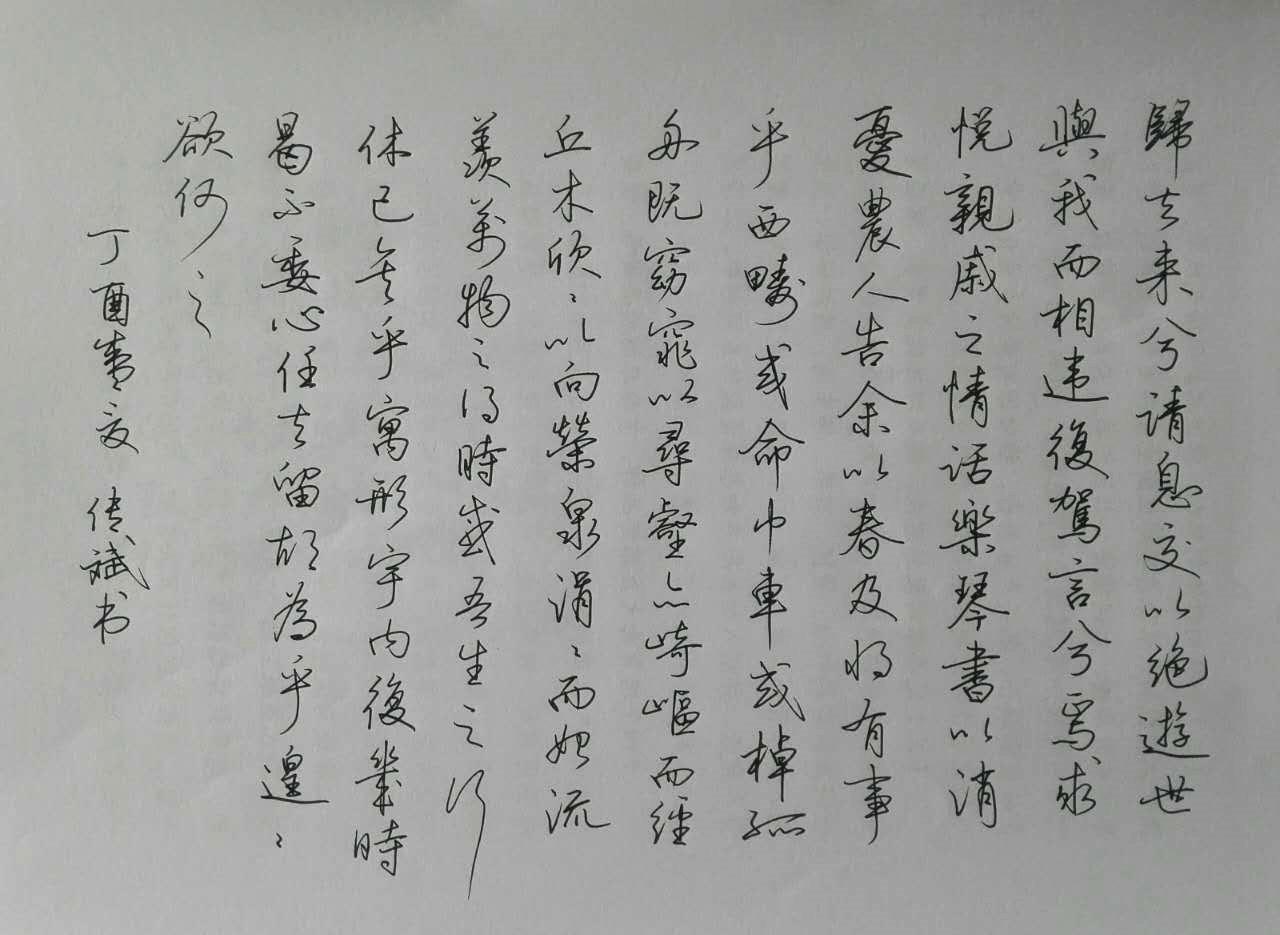 歸去来兮请息交以绝遊世
與我而相违復駕言兮焉求
悦親戚之情话樂琴書以消
憂農人告余以春及将有事
乎西疇或命巾車或棹孤
舟既窈窕以尋壑亦崎嶇而經
丘木欣〻以向榮泉涓〻而始流
羡萬物之得時感吾生之行
休已矣乎寓形宇内復幾時
曷不委心任去留胡為乎遑〻
欲何之
丁酉 夏 传斌书